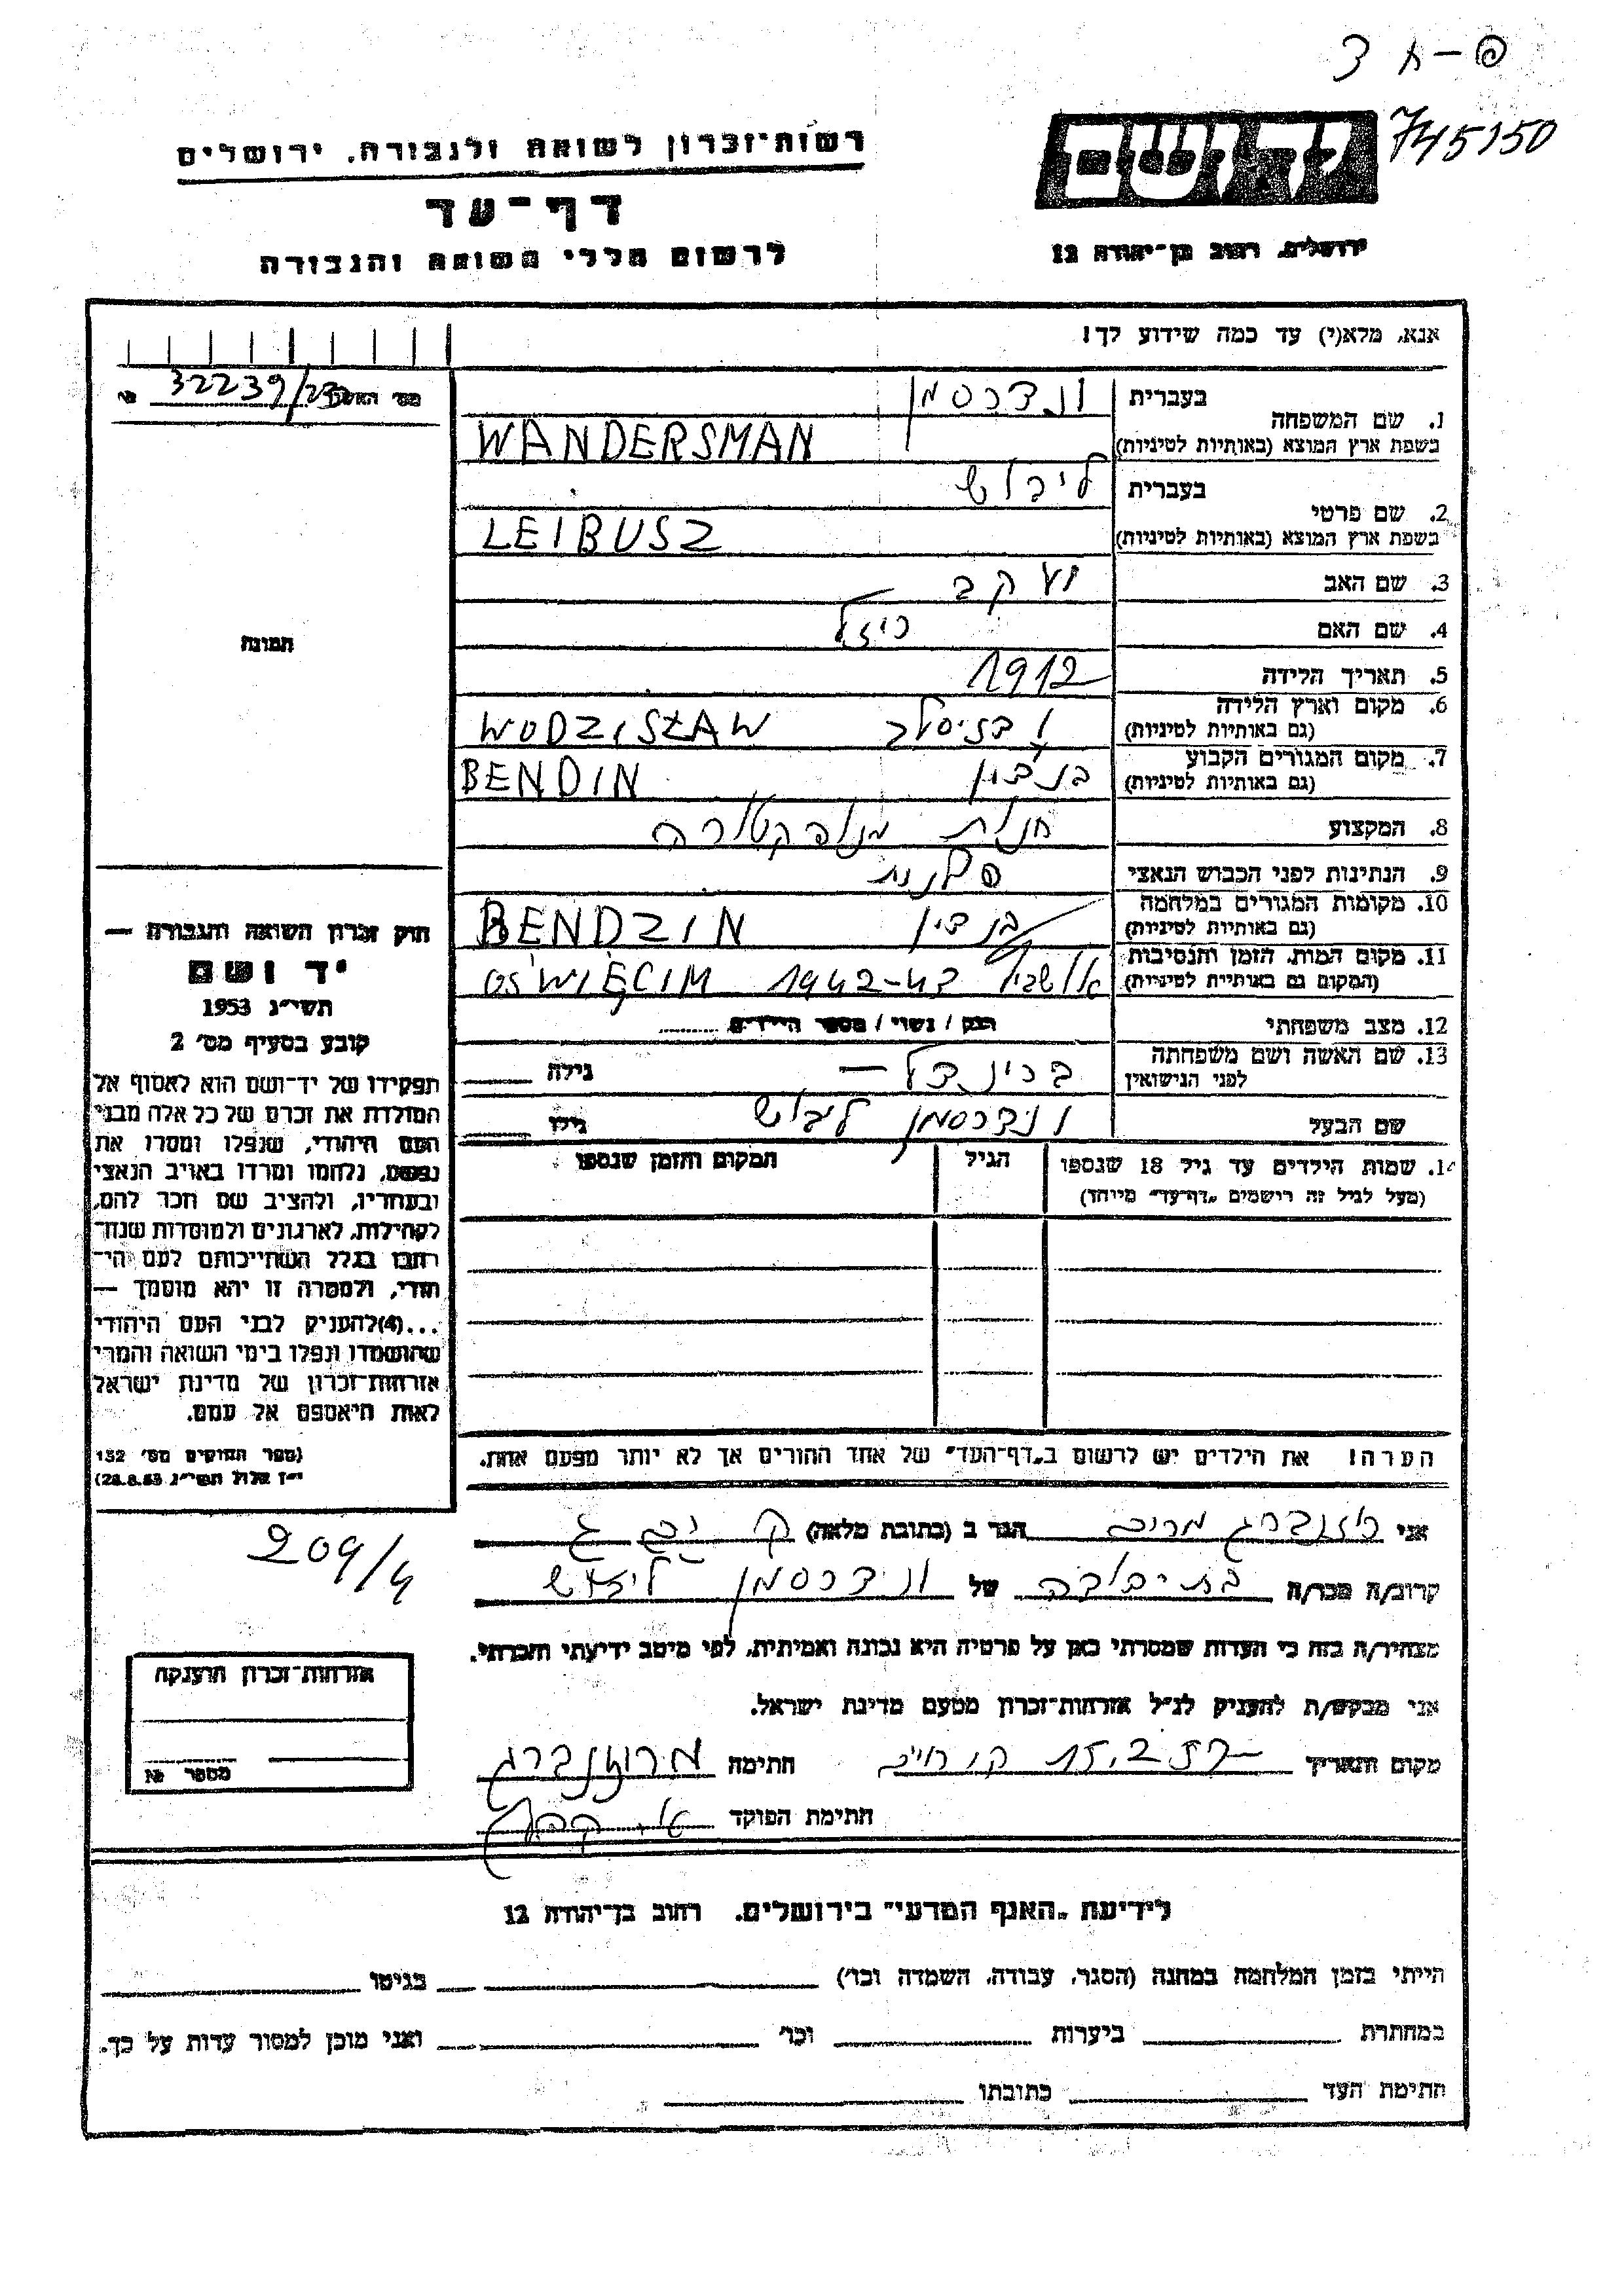 פ – א צ
745150
יד ושם
רשות־זכרון לשואה ולגבורה, ירושלים
דף־עד
לרשום חללי השואה והגבורה
ירושלים, רחוב בן־יהודה 12
אנא, מלא(י) עד כמה שידוע לך!
32239/
1. שם המשפחה
בעברית ונדרסמן
בשפת ארץ המוצא (באותיות לטיניות) WANDERSMAN
2. שם פרטי
בעברית ליבוש
בשפת ארץ המוצא (באותיות לטיניות) LEIBUSZ
3. שם האב יעקב
4. שם האם רייזל
5. תאריך הלידה 1912
6. מקום וארץ הלידה
(גם באותיות לטיניות) WODZISŁAW
7. מקום המגורים הקבוע
(גם באותיות לטיניות) בנדין BENDIN
8. המקצוע חנות מנופקטורה
9. הנתינות לפני הכבוש הנאצי פולנית
10. מקומות המגורים במלחמה
(גם באותיות לטיניות) בנדין BENDZIN
11. מקום המות, הזמן והנסיבות
(המקום גם באותיות לטיניות) אושביץ OŚWIĘCIM 1942-43
12. מצב משפחתי רווק / נשוי / מספר הילדים
13. שם האשה ושם משפחתה
לפני הנישואין בריינדל – גילה
שם הבעל ונדרסמן ליבוש גילו
14. שמות הילדים עד גיל 18 שנספו הגיל המקום והזמן שנספו
(מעל לגיל זה רישמים „דף־עד" מייחד)
הערה! את הילדים יש לרשום ב„דף־העד" של אחד ההורים אך לא יותר מפעם אחת.
תמונה
חוק זכרון השואה והגבורה —
יד ושם
תשי"ג 1953
קובע בסעיף מס' 2
תפקידו של יד־ושם הוא לאסוף אל
המולדת את זכרם של כל אלה מבני
העם היהודי, שנפלו ומסרו את
נפשם, נלחמו ומרדו באויב הנאצי
ובעוזריו, ולהציב שם וזכר להם,
לקהילות, לארגונים ולמוסדות שנח־
רבו בגלל השתייכותם לעם הי־
הודי, ולמטרה זו יהא מוסמך —
...(4) להעניק לבני העם היהודי
שהושמדו ונפלו בימי השואה והמרי
אזרחות־זכרון של מדינת ישראל
לאות היאספם אל עמם.
(ספר החוקים מס' 132
י"ז אלול תשי"ג 28.8.53)
209/4
אני רוזנברג מרים הגר ב (כתובת מלאה)
קרוב/ה מכר/ה של ונדרסמן
מצהיר/ה בזה כי העדות שמסרתי כאן על פרטיה היא נכונה ואמיתית, לפי מיטב ידיעתי והכרתי.
אני מבקש/ת להעניק לנ"ל אזרחות־זכרון מטעם מדינת ישראל.
מקום ותאריך 15.2.57 חתימה
חתימת הפוקד
אזרחות־זכרון הוענקה
מספר №
לידיעת „האגף המדעי" בירושלים, רחוב בן־יהודה 12
הייתי בזמן המלחמה במחנה (הסגר, עבודה, השמדה וכו') בגיטו
במחתרת ביערות וכו' ואני מוכן למסור עדות על כך.
חתימת העד כתובתו